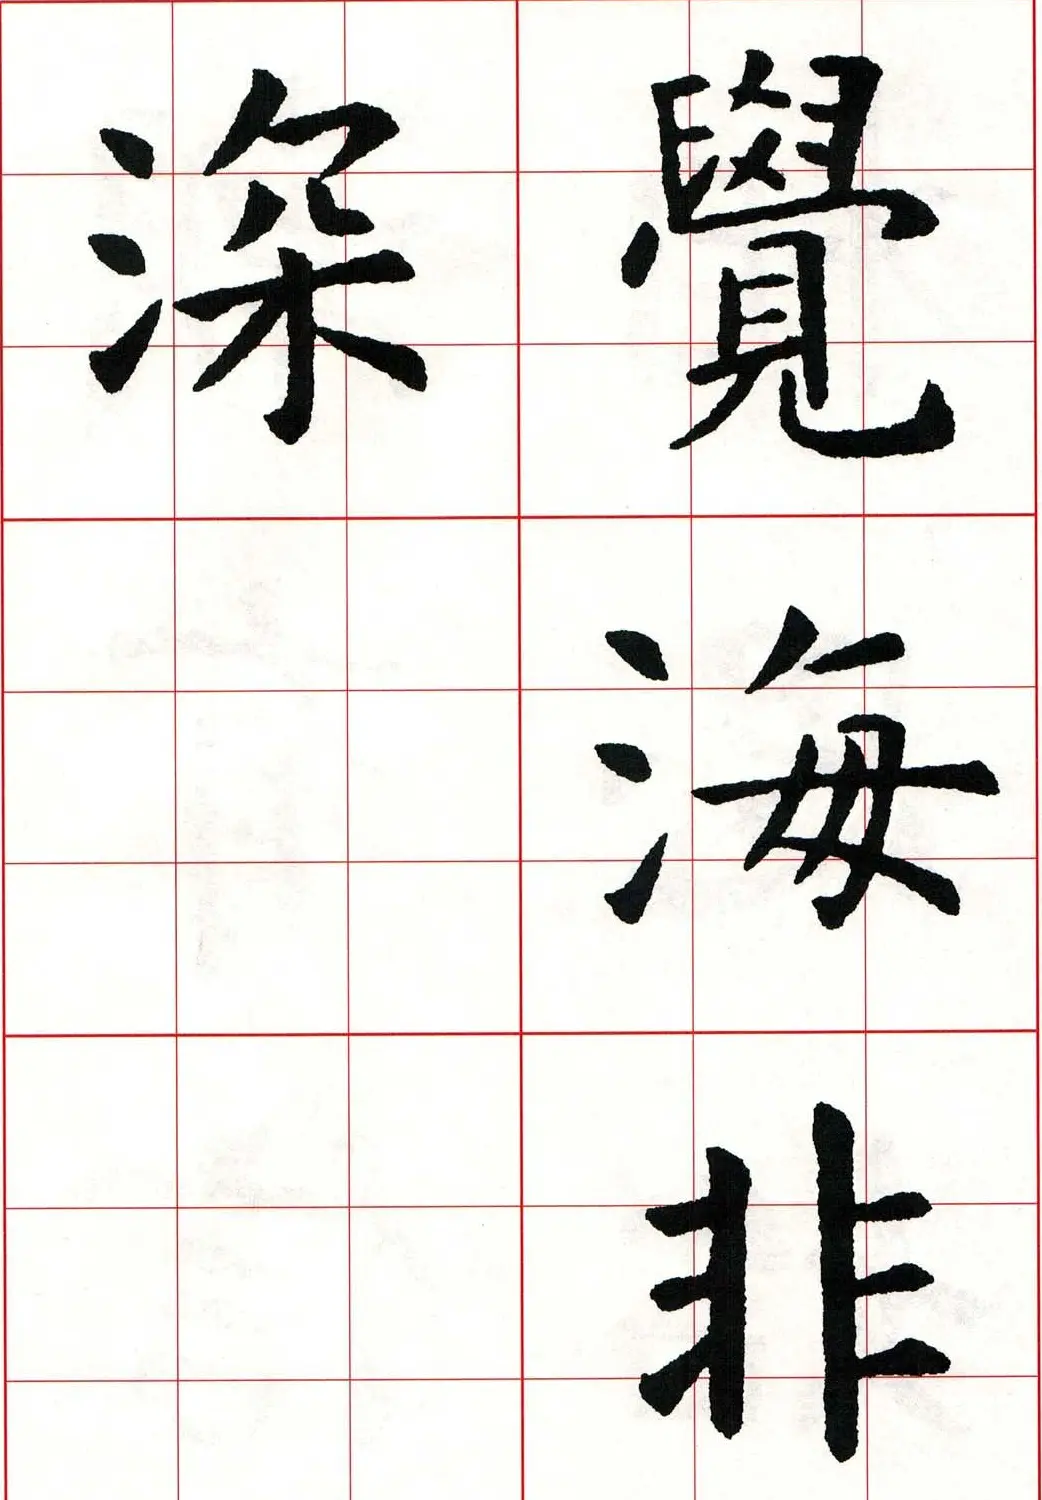 覺海非
深